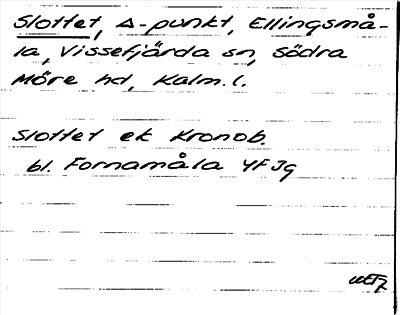 Slottet, Δ-punkt, Ellingsmå-
la, Vissefjärda sn, Södra
Möre hd, Kalm.l.
Slottet ek Kronob.
bl. Fornamåla 4F Jg